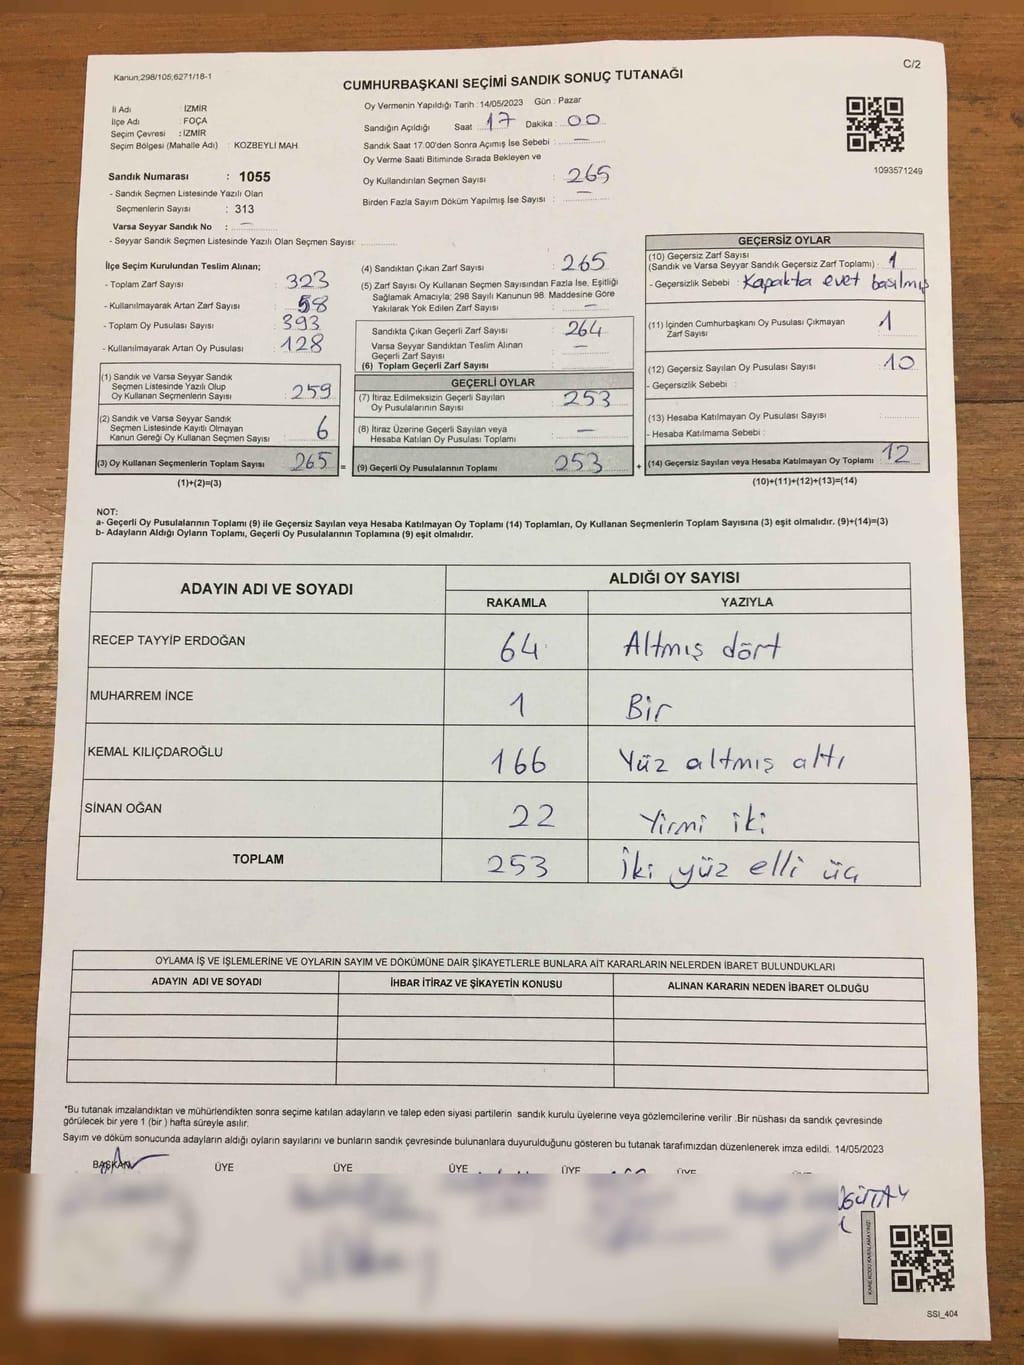 Kanun;298/105,6271/18-1
C/2
CUMHURBAŞKANI SEÇİMİ SANDIK SONUÇ TUTANAĞI
İl Adı : İZMİR
İlçe Adı : FOÇA
Seçim Çevresi : İZMİR
Seçim Bölgesi (Mahalle Adı) : KOZBEYLİ MAH.
Sandık Numarası : 1055
- Sandık Seçmen Listesinde Yazılı Olan
Seçmenlerin Sayısı : 313
Varsa Seyyar Sandık No : —
- Seyyar Sandık Seçmen Listesinde Yazılı Olan Seçmen Sayısı:
Oy Vermenin Yapıldığı Tarih : 14/05/2023 Gün : Pazar
Sandığın Açıldığı Saat : 17 Dakika : 00
Sandık Saat 17.00'den Sonra Açımış İse Sebebi : —
Oy Verme Saati Bitiminde Sırada Bekleyen ve
Oy Kullandırılan Seçmen Sayısı : 265
Birden Fazla Sayım Döküm Yapılmış İse Sayısı : —
1093571249
İlçe Seçim Kurulundan Teslim Alınan;
- Toplam Zarf Sayısı : 323
- Kullanılmayarak Artan Zarf Sayısı : 58
- Toplam Oy Pusulası Sayısı : 393
- Kullanılmayarak Artan Oy Pusulası : 128
(1) Sandık ve Varsa Seyyar Sandık
Seçmen Listesinde Yazılı Olup
Oy Kullanan Seçmenlerin Sayısı : 259
(2) Sandık ve Varsa Seyyar Sandık
Seçmen Listesinde Kayıtlı Olmayan
Kanun Gereği Oy Kullanan Seçmen Sayısı : 6
(3) Oy Kullanan Seçmenlerin Toplam Sayısı 265 =
(1)+(2)=(3)
(4) Sandıktan Çıkan Zarf Sayısı : 265
(5) Zarf Sayısı Oy Kullanan Seçmen Sayısından Fazla İse, Eşitliği
Sağlamak Amacıyla; 298 Sayılı Kanunun 98. Maddesine Göre
Yakılarak Yok Edilen Zarf Sayısı : —
Sandıkta Çıkan Geçerli Zarf Sayısı : 264
Varsa Seyyar Sandıktan Teslim Alınan
Geçerli Zarf Sayısı : —
(6) Toplam Geçerli Zarf Sayısı :
GEÇERLİ OYLAR
(7) İtiraz Edilmeksizin Geçerli Sayılan
Oy Pusulalarının Sayısı : 253
(8) İtiraz Üzerine Geçerli Sayılan veya
Hesaba Katılan Oy Pusulası Toplamı : —
(9) Geçerli Oy Pusulalarının Toplamı 253 +
GEÇERSİZ OYLAR
(10) Geçersiz Zarf Sayısı
(Sandık ve Varsa Seyyar Sandık Geçersiz Zarf Toplamı) : 1
- Geçersizlik Sebebi : Kapakta evet basılmış
(11) İçinden Cumhurbaşkanı Oy Pusulası Çıkmayan
Zarf Sayısı : 1
(12) Geçersiz Sayılan Oy Pusulası Sayısı : 10
- Geçersizlik Sebebi :
(13) Hesaba Katılmayan Oy Pusulası Sayısı :
- Hesaba Katılmama Sebebi :
(14) Geçersiz Sayılan veya Hesaba Katılmayan Oy Toplamı : 12
(10)+(11)+(12)+(13)=(14)
NOT:
a- Geçerli Oy Pusulalarının Toplamı (9) ile Geçersiz Sayılan veya Hesaba Katılmayan Oy Toplamı (14) Toplamları, Oy Kullanan Seçmenlerin Toplam Sayısına (3) eşit olmalıdır. (9)+(14)=(3)
b- Adayların Aldığı Oyların Toplamı, Geçerli Oy Pusulalarının Toplamına (9) eşit olmalıdır.
ADAYIN ADI VE SOYADI
ALDIĞI OY SAYISI
RAKAMLA YAZIYLA
RECEP TAYYİP ERDOĞAN 64 Altmış dört
MUHARREM İNCE 1 Bir
KEMAL KILIÇDAROĞLU 166 Yüz altmış altı
SİNAN OĞAN 22 Yirmi iki
TOPLAM 253 İki yüz elli üç
OYLAMA İŞ VE İŞLEMLERİNE VE OYLARIN SAYIM VE DÖKÜMÜNE DAİR ŞİKAYETLERLE BUNLARA AİT KARARLARIN NELERDEN İBARET BULUNDUKLARI
ADAYIN ADI VE SOYADI İHBAR İTİRAZ VE ŞİKAYETİN KONUSU ALINAN KARARIN NEDEN İBARET OLDUĞU
*Bu tutanak imzalandıktan ve mühürlendikten sonra seçime katılan adayların ve talep eden siyasi partilerin sandık kurulu üyelerine veya gözlemcilerine verilir .Bir nüshası da sandık çevresinde
görülecek bir yere 1 (bir ) hafta süreyle asılır.
Sayım ve döküm sonucunda adayların aldığı oyların sayılarını ve bunların sandık çevresinde bulunanlara duyurulduğunu gösteren bu tutanak tarafımızdan düzenlenerek imza edildi. 14/05/2023
BAŞKAN ÜYE ÜYE ÜYE ÜYE ÜYE
KAREKODU KARALAMAYINIZ!
SSI_404